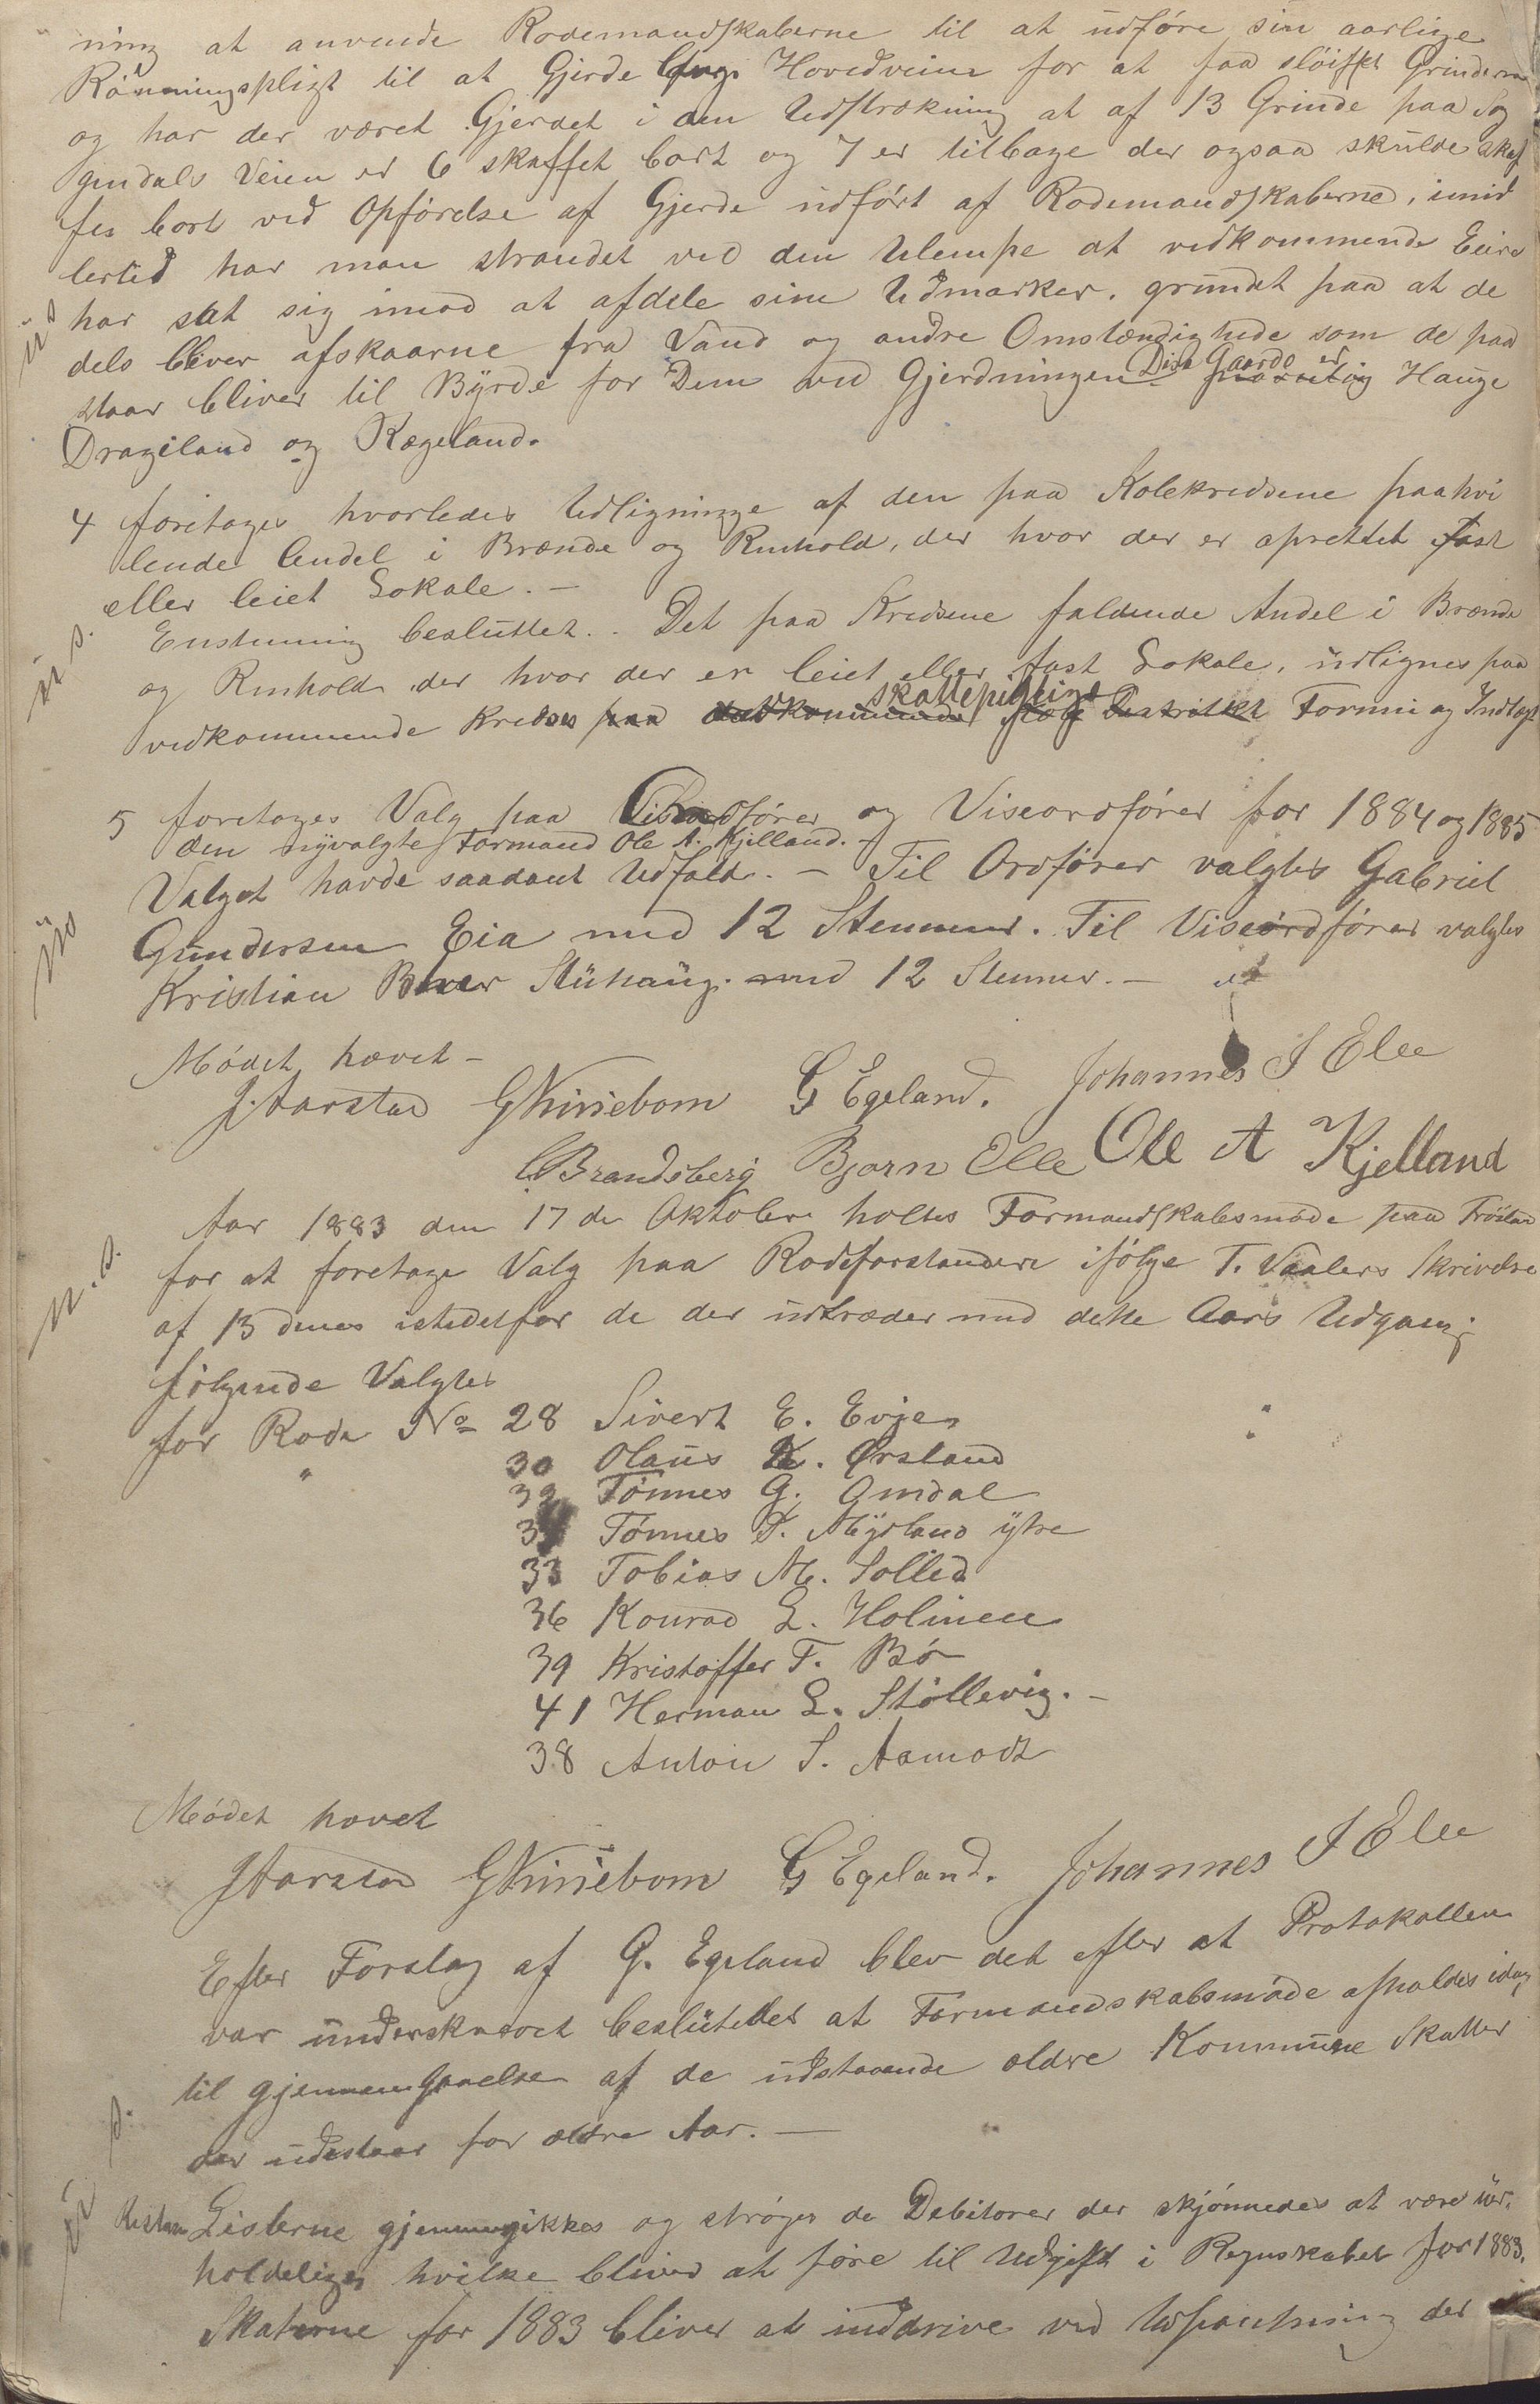 ning at anvende Rodemandskaberne til at udføre sin aarlige
Rødningspligt til at Gjerde langs Hovedveien for at faa sløiffet Grinderne
og har der været Gjerdet i den Udstrækning at af 13 Grinde paa Sog
gendals Veien er 6 skaffet bort og 7 er tilbage der ogsaa skulde skaf
fes bort ved Opførelse af Gjerde udført af Rodemandskaberne, imid
lertid har man strandet ved den Ulempe at vedkommende Eiere
har sat sig imod at afdele sine Udmarker, grundet paa at de
dels bliver afskaarne fra Vand og andre Omstændighede som de paa
staar bliver til Byrde for Dem ved Gjerdningen Disse Gaarde er Hauge
Drageland og Rægeland.
4 foretages hvorledes Udligninge af den paa Skolekredsene paahvi
lende Andel i Brænde og Renhold, der hvor der er oprettet fast
eller leiet Lokale. –
Enstemmig besluttet. Det paa Kredsene faldende Andel i Brænde
og Renhold der hvor der er leiet eller fast Lokale, udlignes paa
vedkommende Kredses skattepligtige Formue og Indtægt
5 foretages Valg paa Ordfører og Viseordfører for 1884 og 1885
den nyvalgte Formand Ole A. Kjelland. –
Valget havde saadant Udfald. – Til Ordfører valgtes Gabriel
Gundersen Eia med 12 Stemmer. Til Viseordfører valgtes
Kristian Stuhaug. med 12 Stemmer. –
Mødet hævet –
J. Aarstad G Egeland. Johannes J Elle
Brandsberg Bjørn Elle Ole A Kjelland
Aar 1883 den 17 de Oktober holtes Formandskabsmøde paa
for at foretage Valg paa Rodeforstandere ifølge T. Vaalers Skrivelse
af 13 denes istedetfor de der udtræder med dette Aars Udgang
følgende Valgtes
for Rode No 28 Sivert E. Evje
" 30 Olaus K. Ørsland
32 Tønnes G. Omdal
34 Tønnes T. Mysland ytre
33 Tobias M. Solled
36 Konrad L. Holmen
39 Kristoffer T. Bø
41 Herman L. Støllevig. –
38 Anton S. Aamodt
Mødet hævet
J Aarstad G Egeland. Johannes J Elle
Efter Forslag af G. Egeland blev det efter at Protokollen
var underskrevet besluttet at Formandskabsmøde afholdes idag
til gjennemgaaelse af de udstaaende ældre Kommune Skatter
der udestaar for ældre Aar. –
Restance Listerne gjennemgikkes og strøges de Debitorer der skjønnedes at være uer:
holdelige, hvilke bliver at føre til Udgift i Regnskabet for 1883.
Skatterne for 1883 bliver at inddrive ved Udpantning der